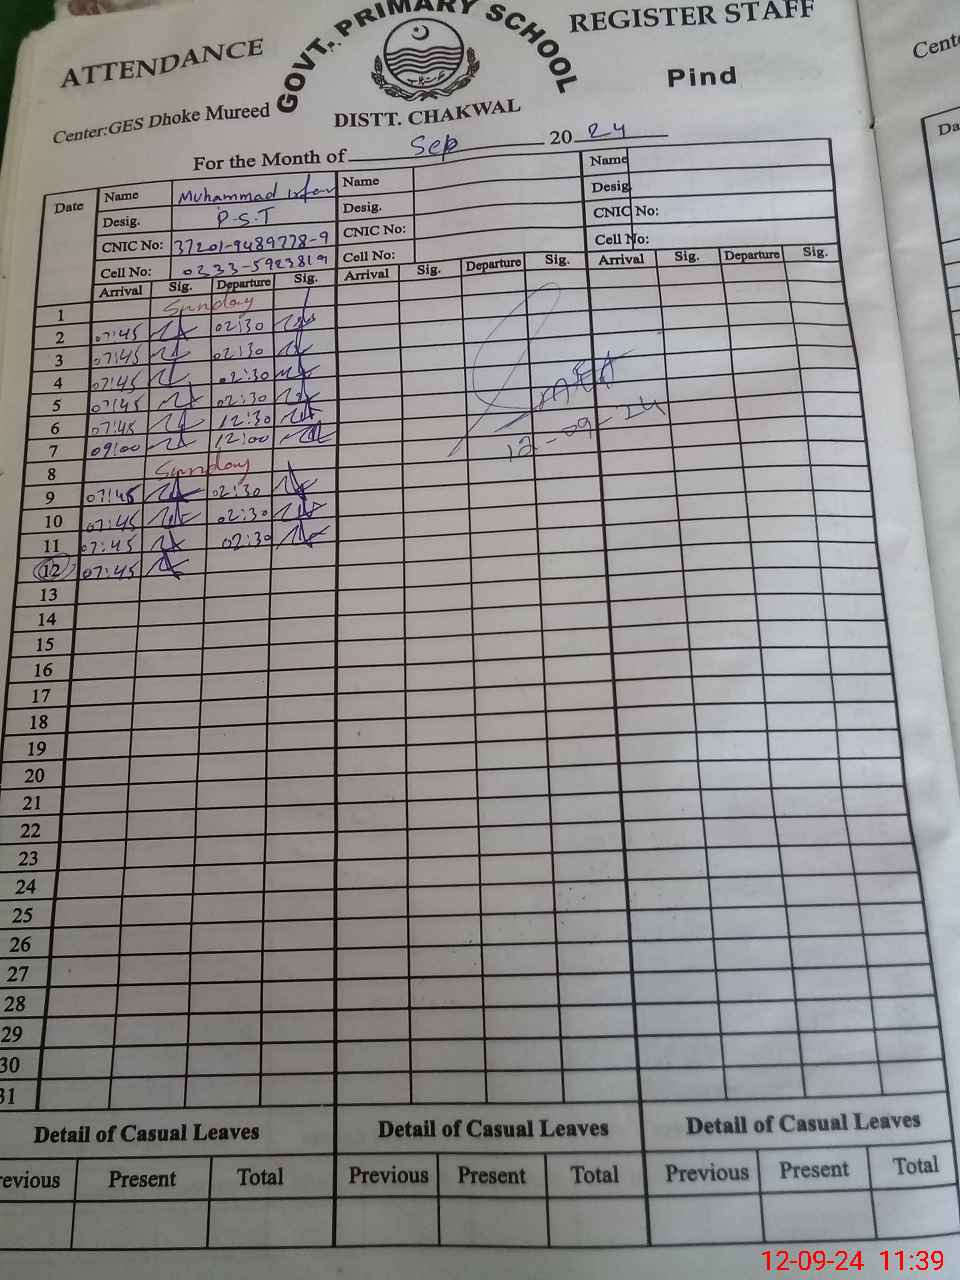 ATTENDANCE
GOVT. PRIMARY SCHOOL
REGISTER STAFF
Center:GES Dhoke Mureed
DISTT. CHAKWAL
Pind
For the Month of Sep 2024
Date Name Muhammad Irfan Name Name
Desig. P.S.T Desig. Desig
CNIC No: 37201-9489778-9 CNIC No: CNIC No:
Cell No: 0333-5923819 Cell No: Cell No:
Arrival Sig. Departure Sig. Arrival Sig. Departure Sig. Arrival Sig. Departure Sig.
1 Sunday
2 07:45 02:30
3 07:45 02:30
4 07:45 02:30
5 07:45 02:30
6 07:45 12:30
7 09:00 12:00
12-09-24
8 Sunday
9 07:45 02:30
10 07:45 02:30
11 07:45 02:30
12 07:45
13
14
15
16
17
18
19
20
21
22
23
24
25
26
27
28
29
30
31
Detail of Casual Leaves Detail of Casual Leaves Detail of Casual Leaves
revious Present Total Previous Present Total Previous Present Total
Cente
Da
12-09-24 11:39